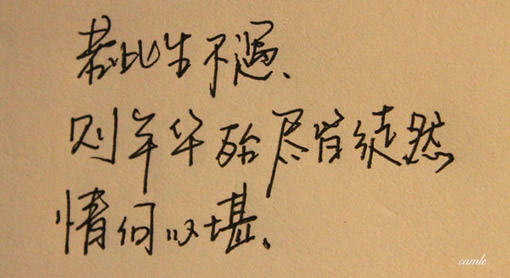 若此生不遇、
则年华殆尽皆徒然
情何以堪。
camle